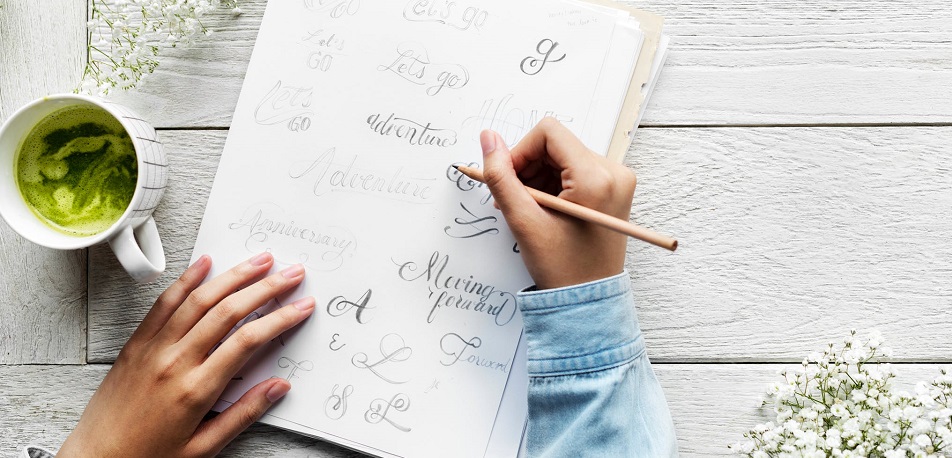 Let's go
g
Let's
GO
Let's go
Let's
GO
adventure
Adventure
Anniversary
Moving
forward
A
E
L
Forward
T
&
L